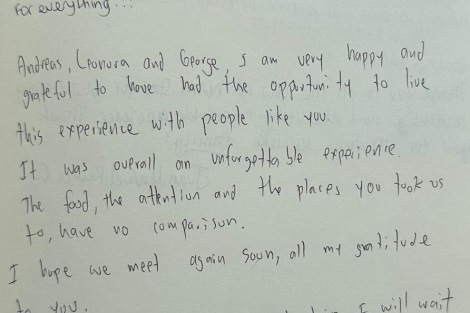 For everything...
Andreas, Leonora and George, I am very happy and
grateful to have had the opportunity to live
this experience with people like you
It was overall an unforgettable experience.
The food, the attention and the places you took us
to, have no comparison.
I hope we meet again soon, all my gratitude
to you.
I will wait